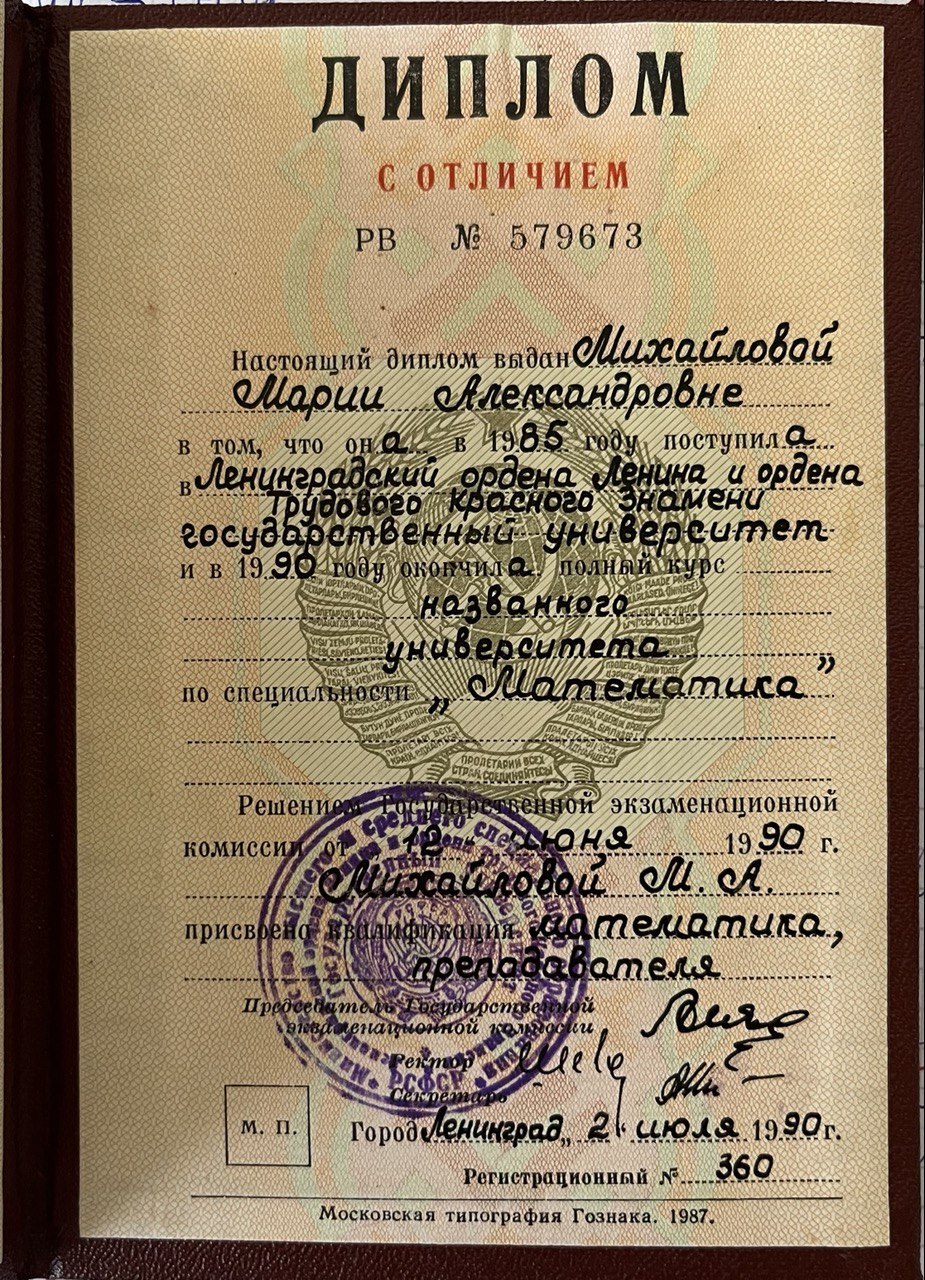 ДИПЛОМ
С ОТЛИЧИЕМ
РВ № 579673
Настоящий диплом выдан Михайловой
Марии Александровне
в том, что она в 1985 году поступила
в Ленинградский ордена Ленина и ордена
Трудового Красного Знамени
государственный университет
и в 1990 году окончила полный курс
названного
университета
по специальности „Математика”
ПРОЛЕТАРИИ ВСЕХ
СТРАН, СОЕДИНЯЙТЕСЬ!
Решением Государственной экзаменационной
комиссии от 12 июня 1990 г.
Михайловой М. А.
присвоена квалификация математика,
преподавателя
Председатель Государственной
экзаменационной комиссии
Ректор
Секретарь
РСФСР
М. П.
Город Ленинград, 2 июля 1990 г.
Регистрационный № 360
Московская типография Гознака. 1987.